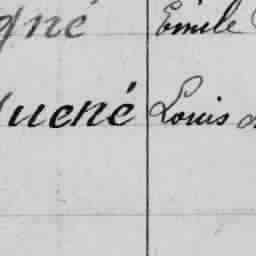 gné Émile
uené Louis